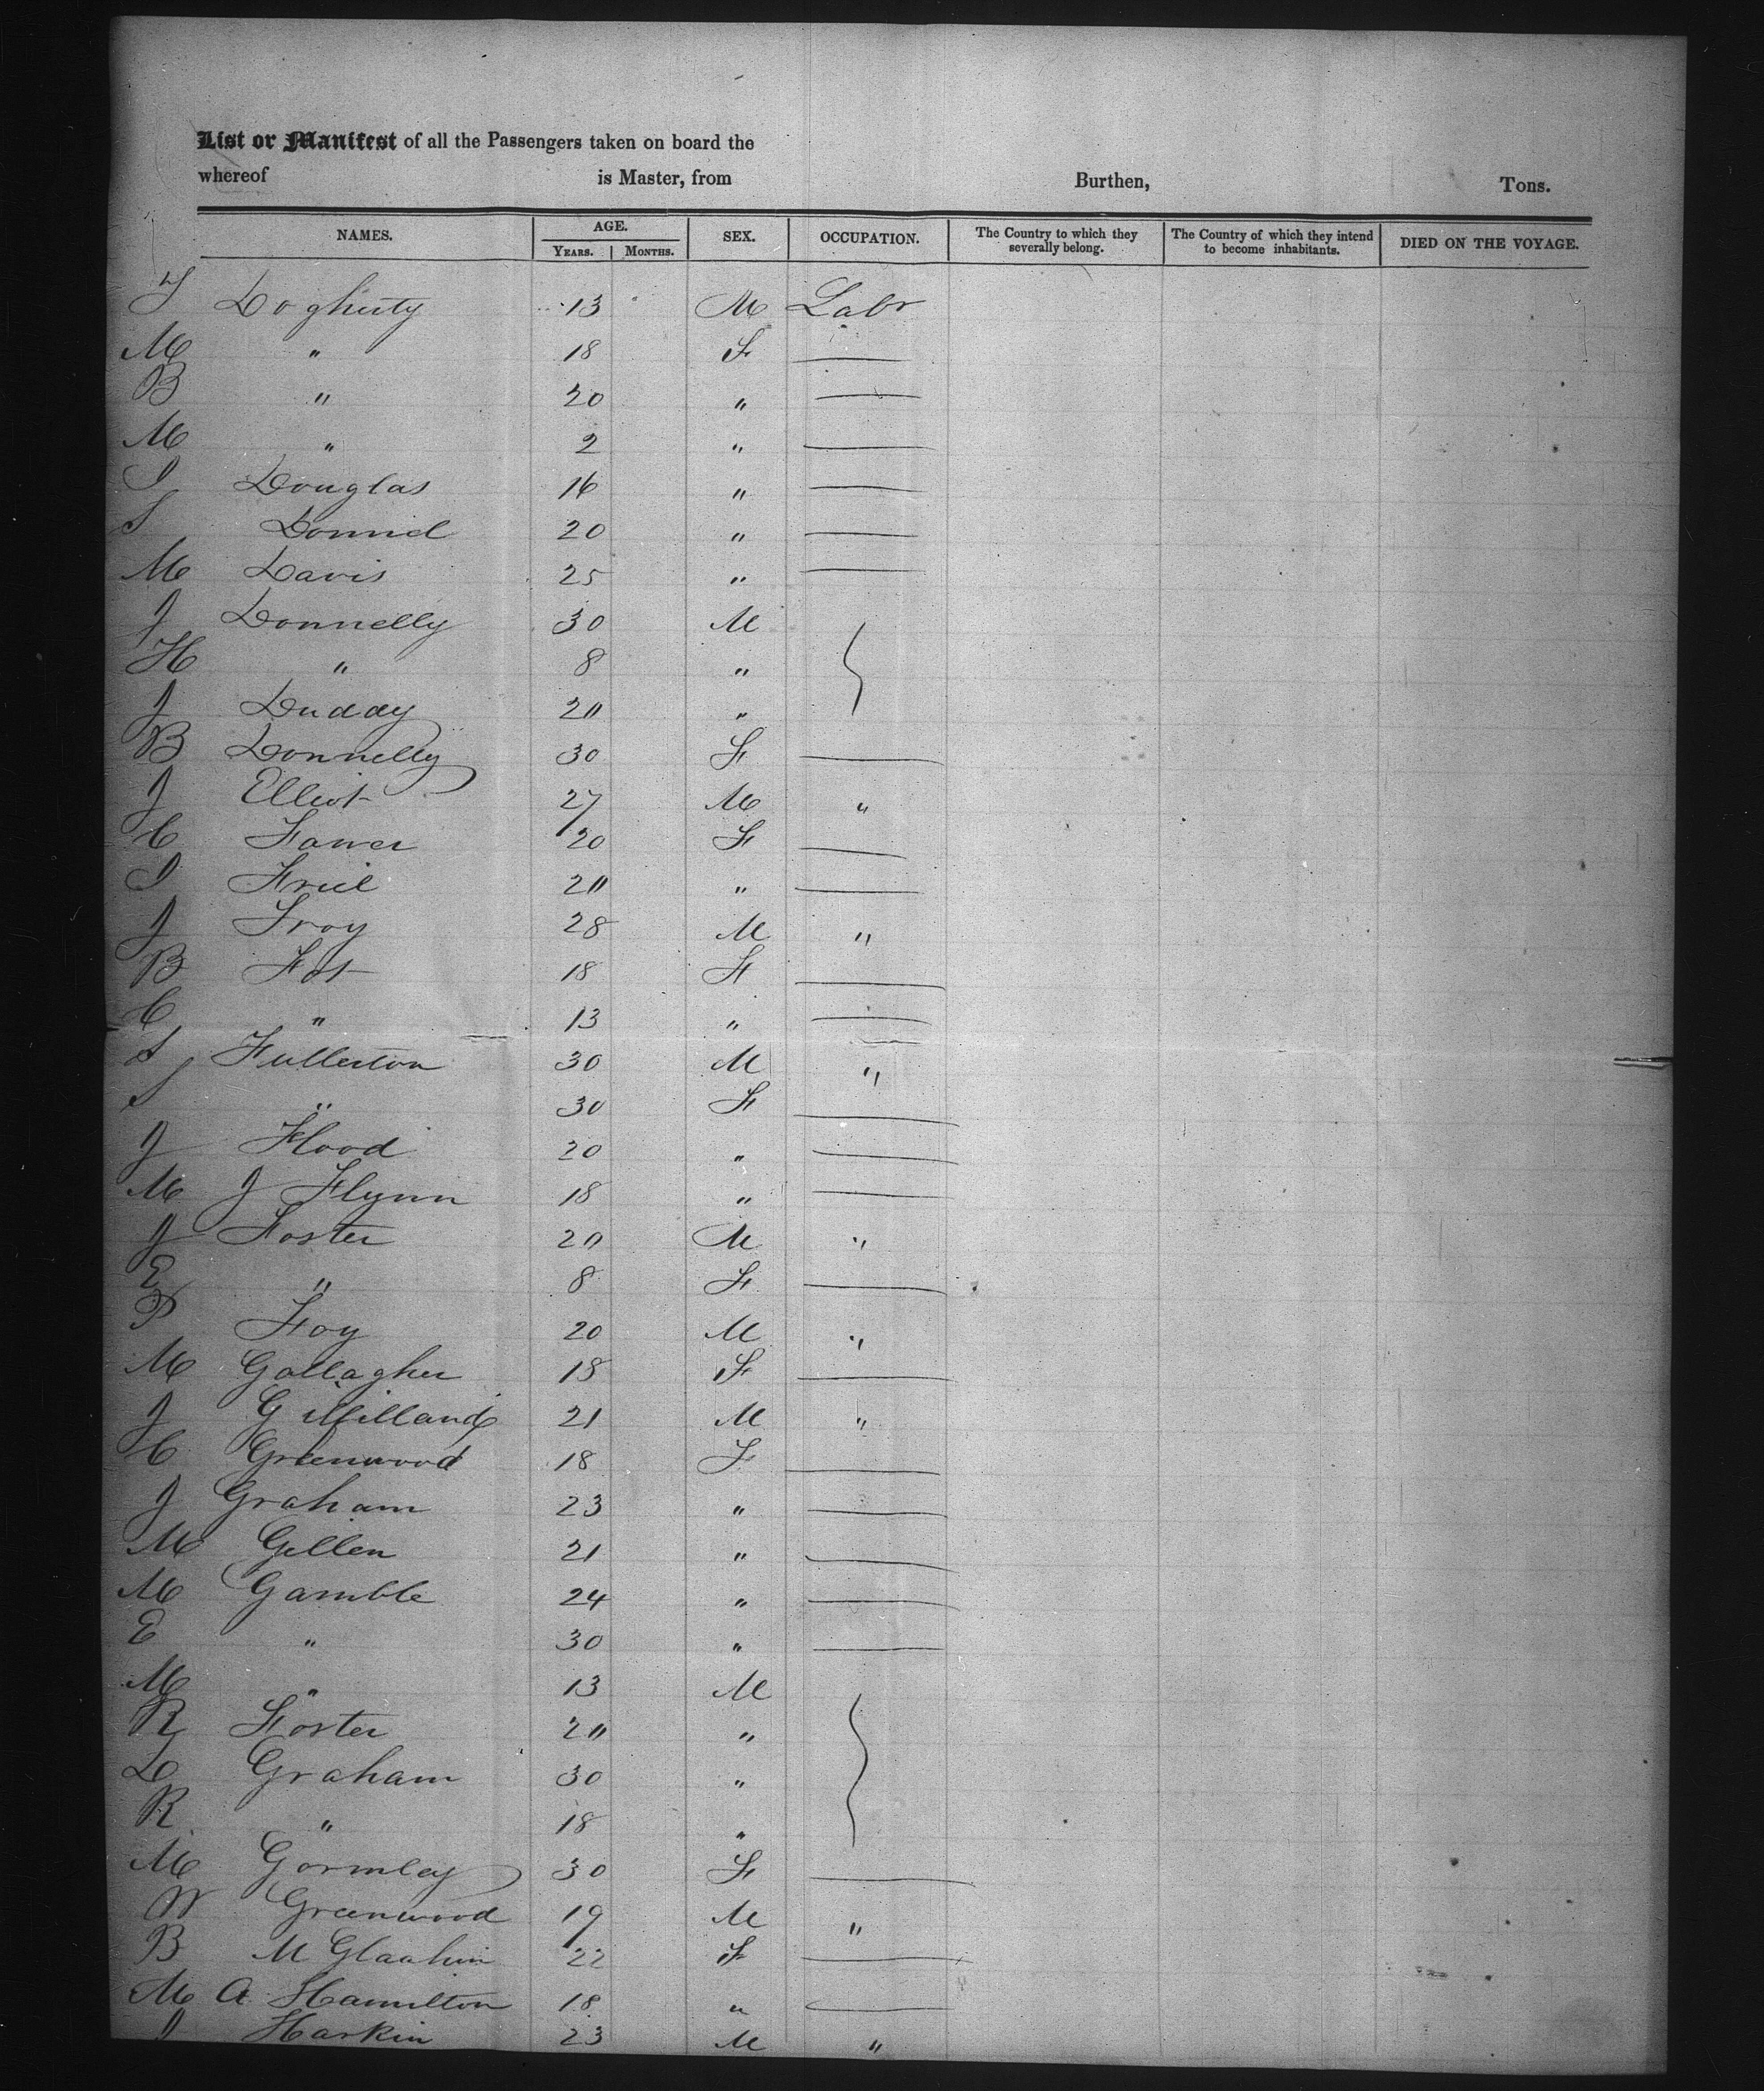 List or Manifest of all the Passengers taken on board the
whereof is Master, from Burthen, Tons.
NAMES. AGE. YEARS. MONTHS. SEX. OCCUPATION. The Country to which they severally belong. The Country of which they intend to become inhabitants. DIED ON THE VOYAGE.
Dogherty 13 M Labr
M " 18 F
B " 20 "
M " 2 "
Douglas 16 "
S 20 "
M Davis 25 "
J Donnelly 30 M
H " 8 "
J Duddy 20 "
B Donnelly 30 F
J Elliot 27 M "
C 20 F
Friel 20 "
J 28 M "
B 18 F
C " 13 "
S Fullerton 30 M "
S " 30 F
J Flood 20 "
M J Flynn 18 "
J Foster 20 M "
E " 8 F
P Foy 20 M "
M Gallagher 18 F
J 21 M "
C Greenwood 18 F
J Graham 23 "
M Gillen 21 "
M Gamble 24 "
E " 30 "
M " 13 M
R Foster 20 "
D Graham 30 "
R " 18 "
M Gormley 30 F
W Greenwood 19 M "
B 22 F
M A Hamilton 18 "
J Harkin 23 M "